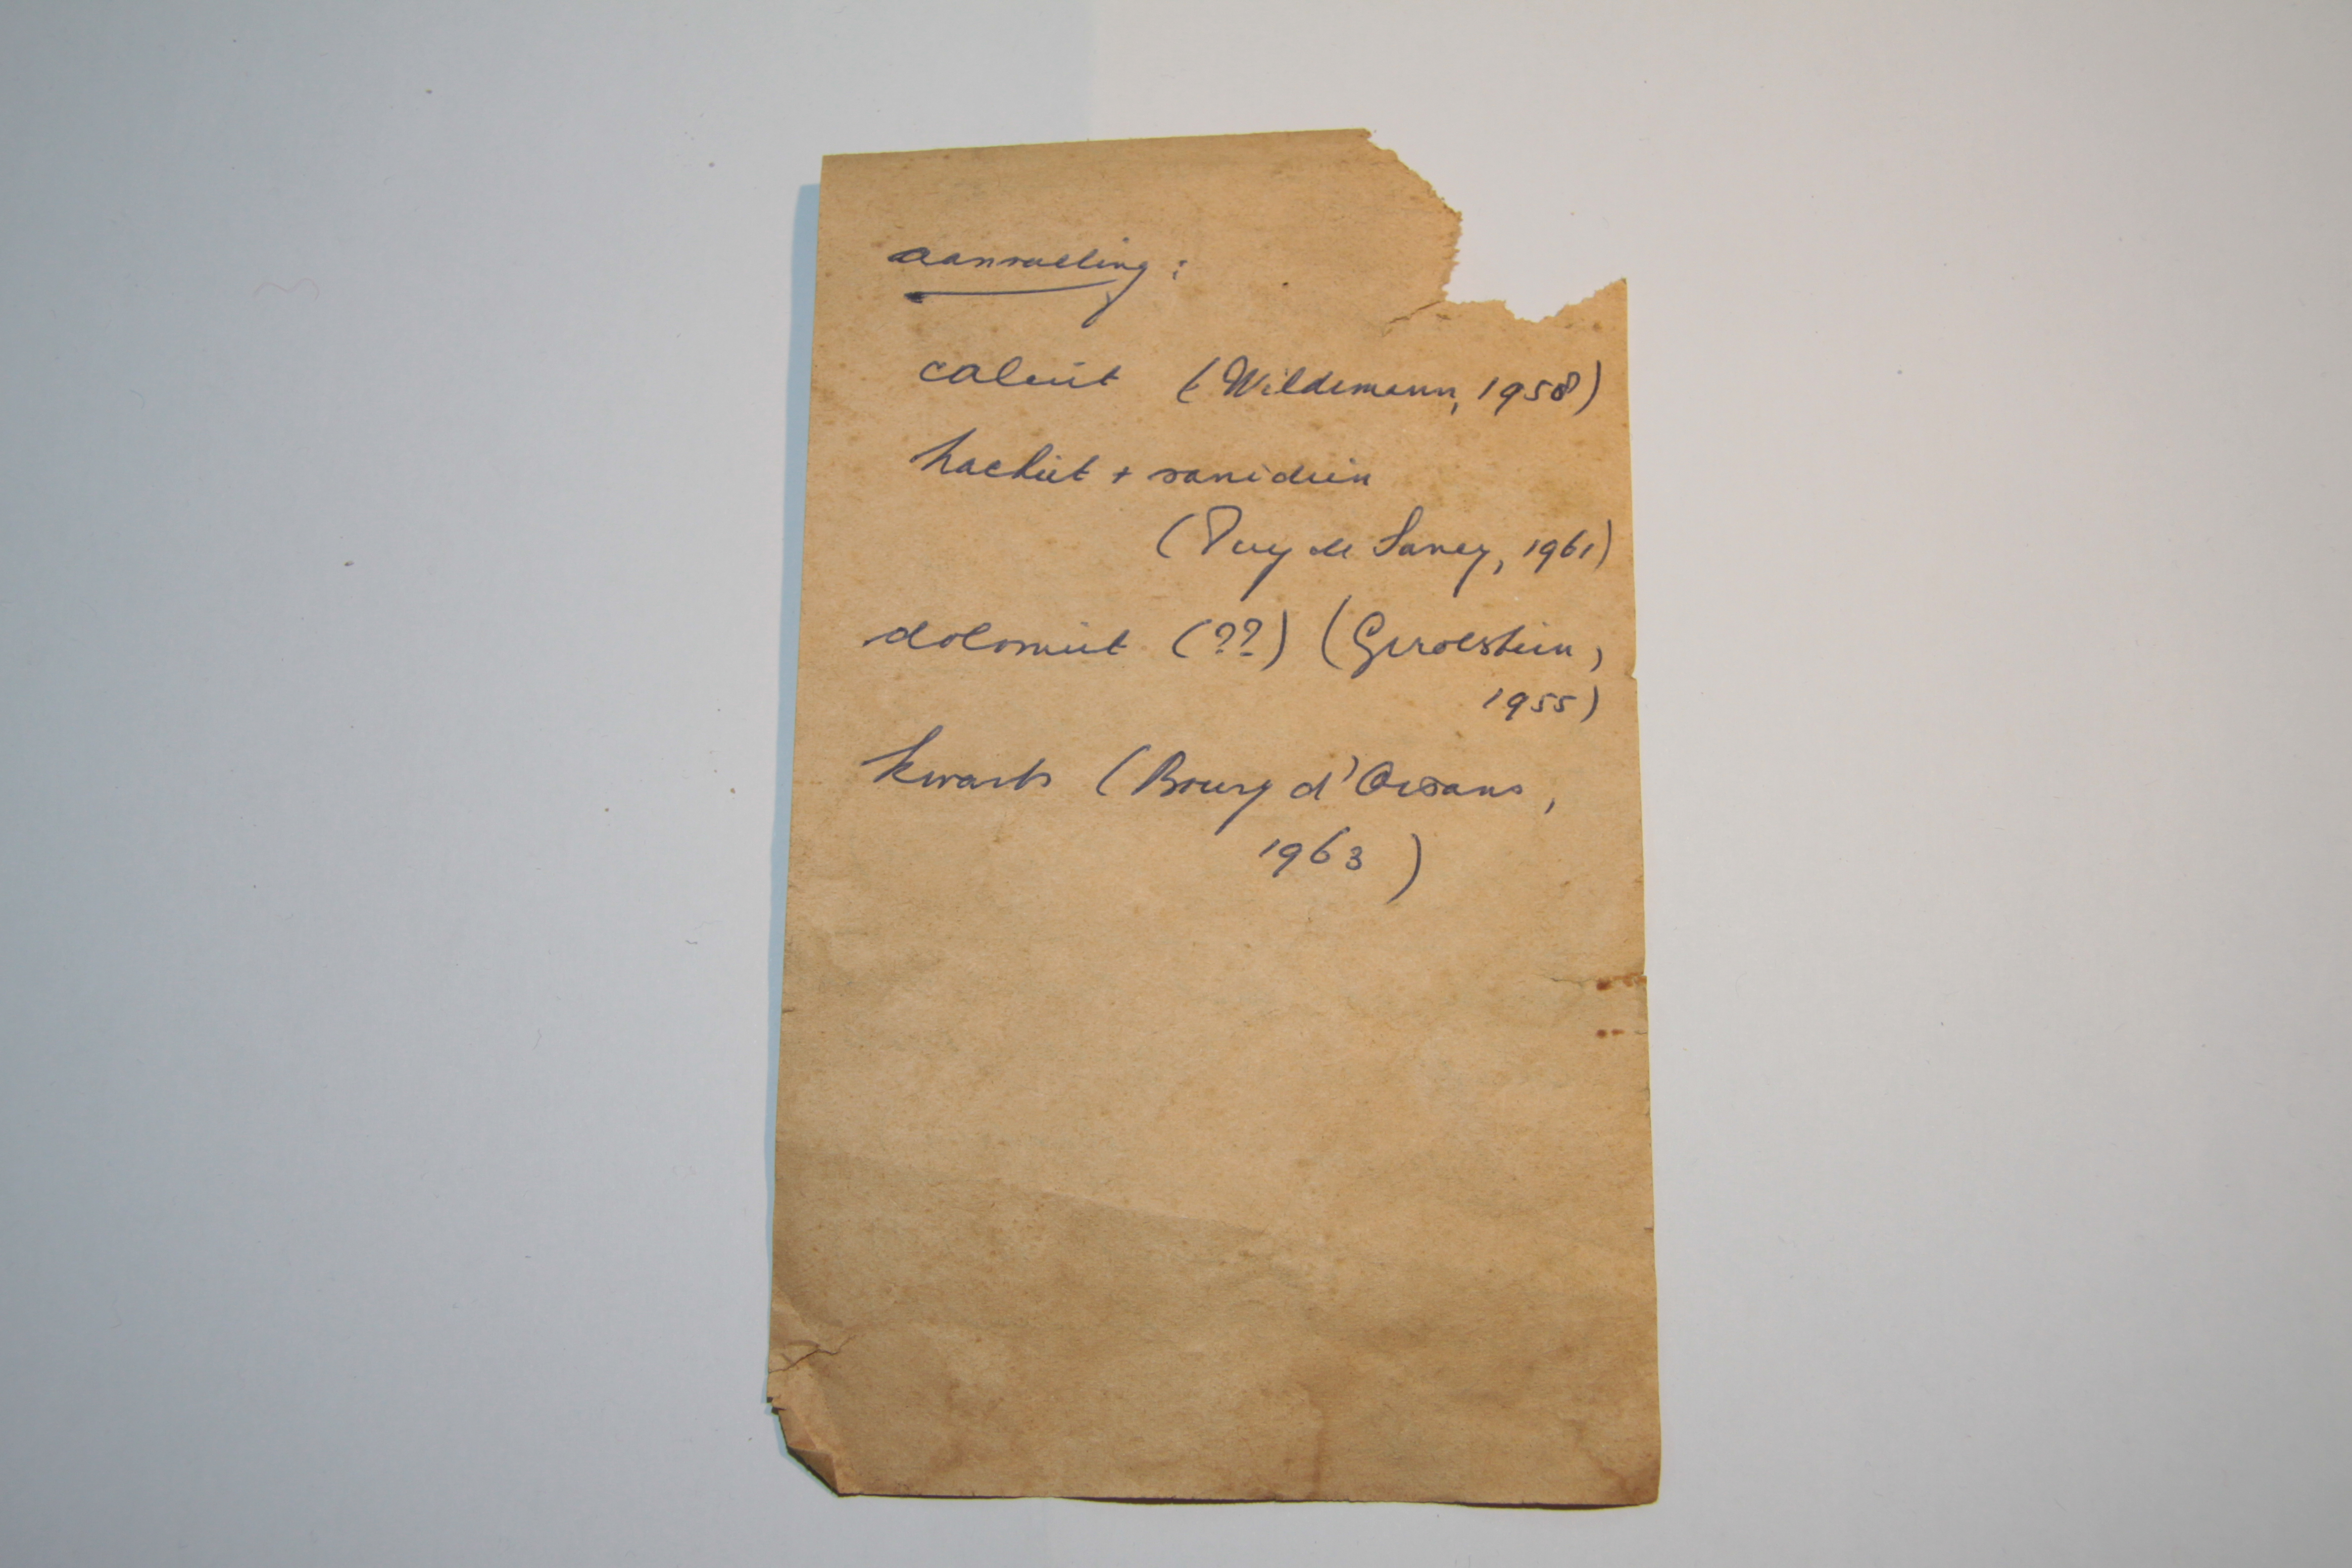 aanvulling :
calciet (Wildemann, 1958)
trachiet + sanidien
(Puy de Sancy, 1961)
dolomiet (??) (Gerolstein,
1955)
kwarts (Bourg d'Oisans,
1963)